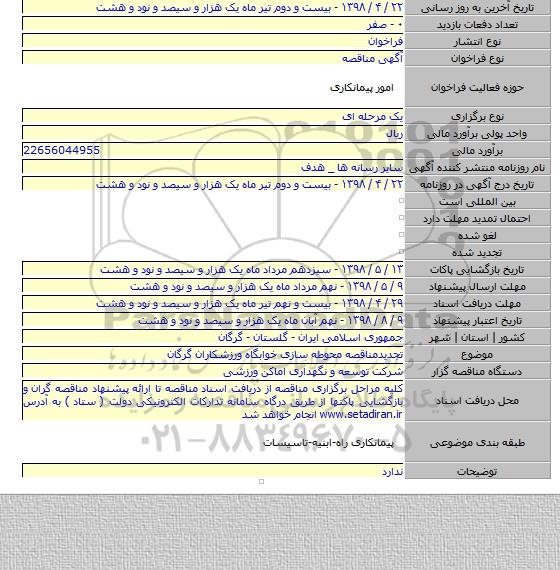 تاریخ آخرین به روز رسانی ۲۲ / ۴ / ۱۳۹۸ - بیست و دوم تیر ماه یک هزار و سیصد و نود و هشت
تعداد دفعات بازدید ۰ - صفر
نوع انتشار فراخوان
نوع فراخوان آگهی مناقصه
حوزه فعالیت فراخوان امور پیمانکاری
نوع برگزاری یک مرحله ای
واحد پولی برآورد مالی ریال
برآورد مالی 22656044955
نام روزنامه منتشر کننده آگهی سایر رسانه ها _ هدف
تاریخ درج آگهی در روزنامه ۲۲ / ۴ / ۱۳۹۸ - بیست و دوم تیر ماه یک هزار و سیصد و نود و هشت
بین المللی است
احتمال تمدید مهلت دارد
لغو شده
تجدید شده
تاریخ بازگشایی پاکات ۱۳ / ۵ / ۱۳۹۸ - سیزدهم مرداد ماه یک هزار و سیصد و نود و هشت
مهلت ارسال پیشنهاد ۹ / ۵ / ۱۳۹۸ - نهم مرداد ماه یک هزار و سیصد و نود و هشت
مهلت دریافت اسناد ۲۹ / ۴ / ۱۳۹۸ - بیست و نهم تیر ماه یک هزار و سیصد و نود و هشت
تاریخ اعتبار پیشنهاد ۹ / ۸ / ۱۳۹۸ - نهم آبان ماه یک هزار و سیصد و نود و هشت
کشور | استان | شهر جمهوری اسلامی ایران - گلستان - گرگان
موضوع تجدیدمناقصه محوطه سازی خوابگاه ورزشکاران گرگان
دستگاه مناقصه گزار شرکت توسعه و نگهداری اماکن ورزشی
محل دریافت اسناد کلیه مراحل برگزاری مناقصه از دریافت اسناد مناقصه تا ارائه پیشنهاد مناقصه گران و
بازگشایی پاکتها از طریق درگاه سامانه تدارکات الکترونیکی دولت ( ستاد ) به آدرس
www.setadiran.ir انجام خواهد شد
طبقه بندی موضوعی پیمانکاری راه-ابنیه-تاسیسات
توضیحات ندارد
۰۲۱-۸۸۳۴۹۶۷۰-۵